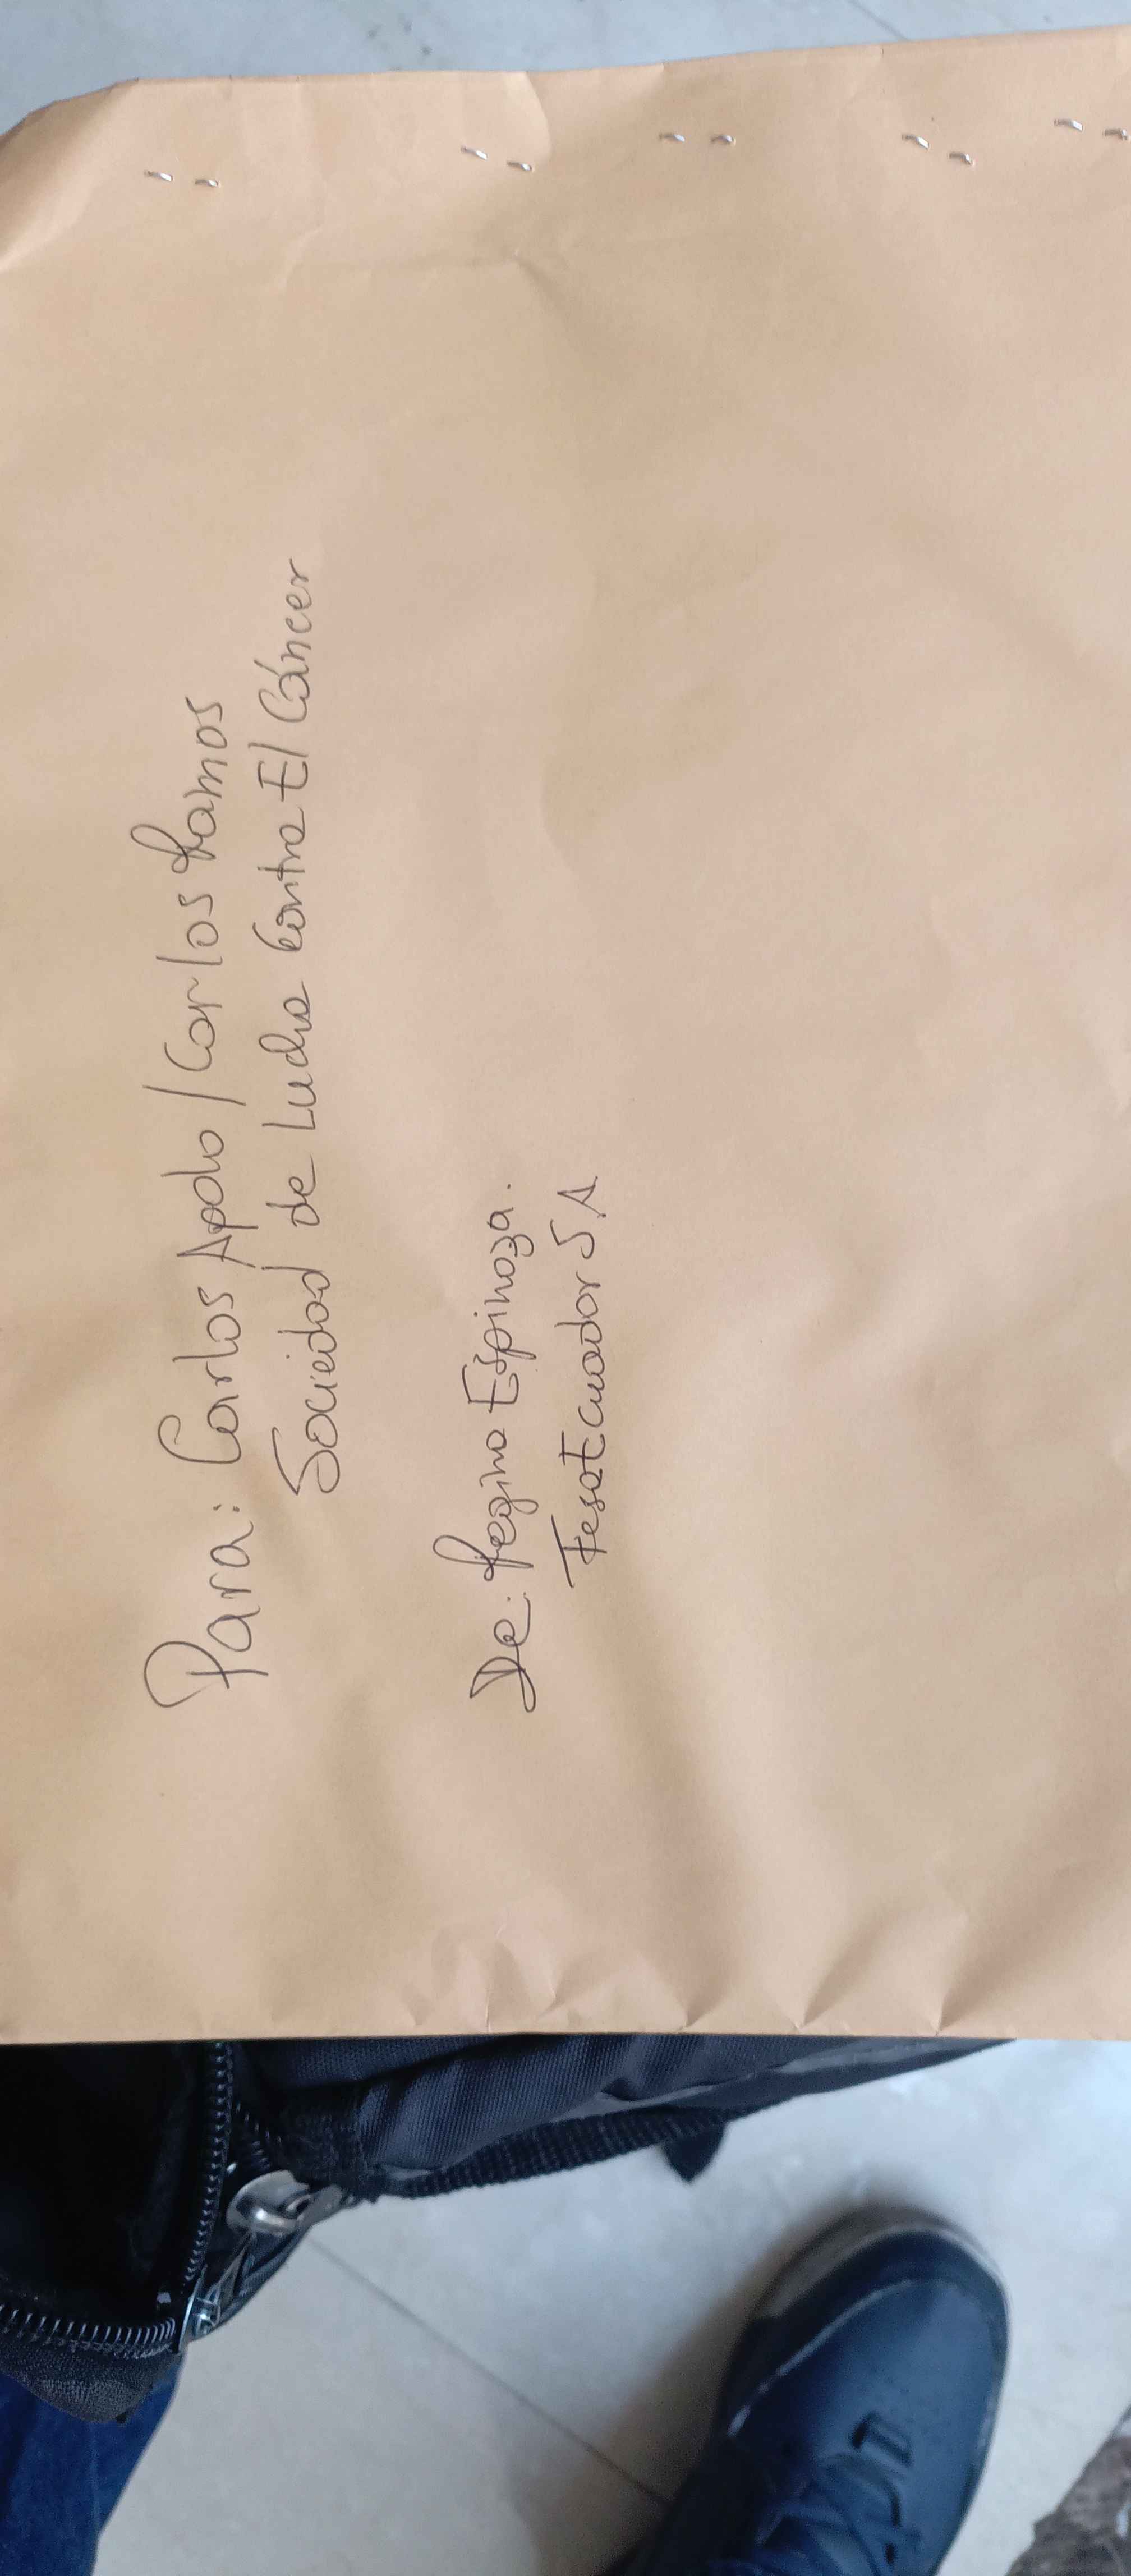 Para: Carlos Apolo / Carlos Ramos
Sociedad de Lucha Contra El Cáncer
De: Regina Espinoza.
TesaEcuador S.A